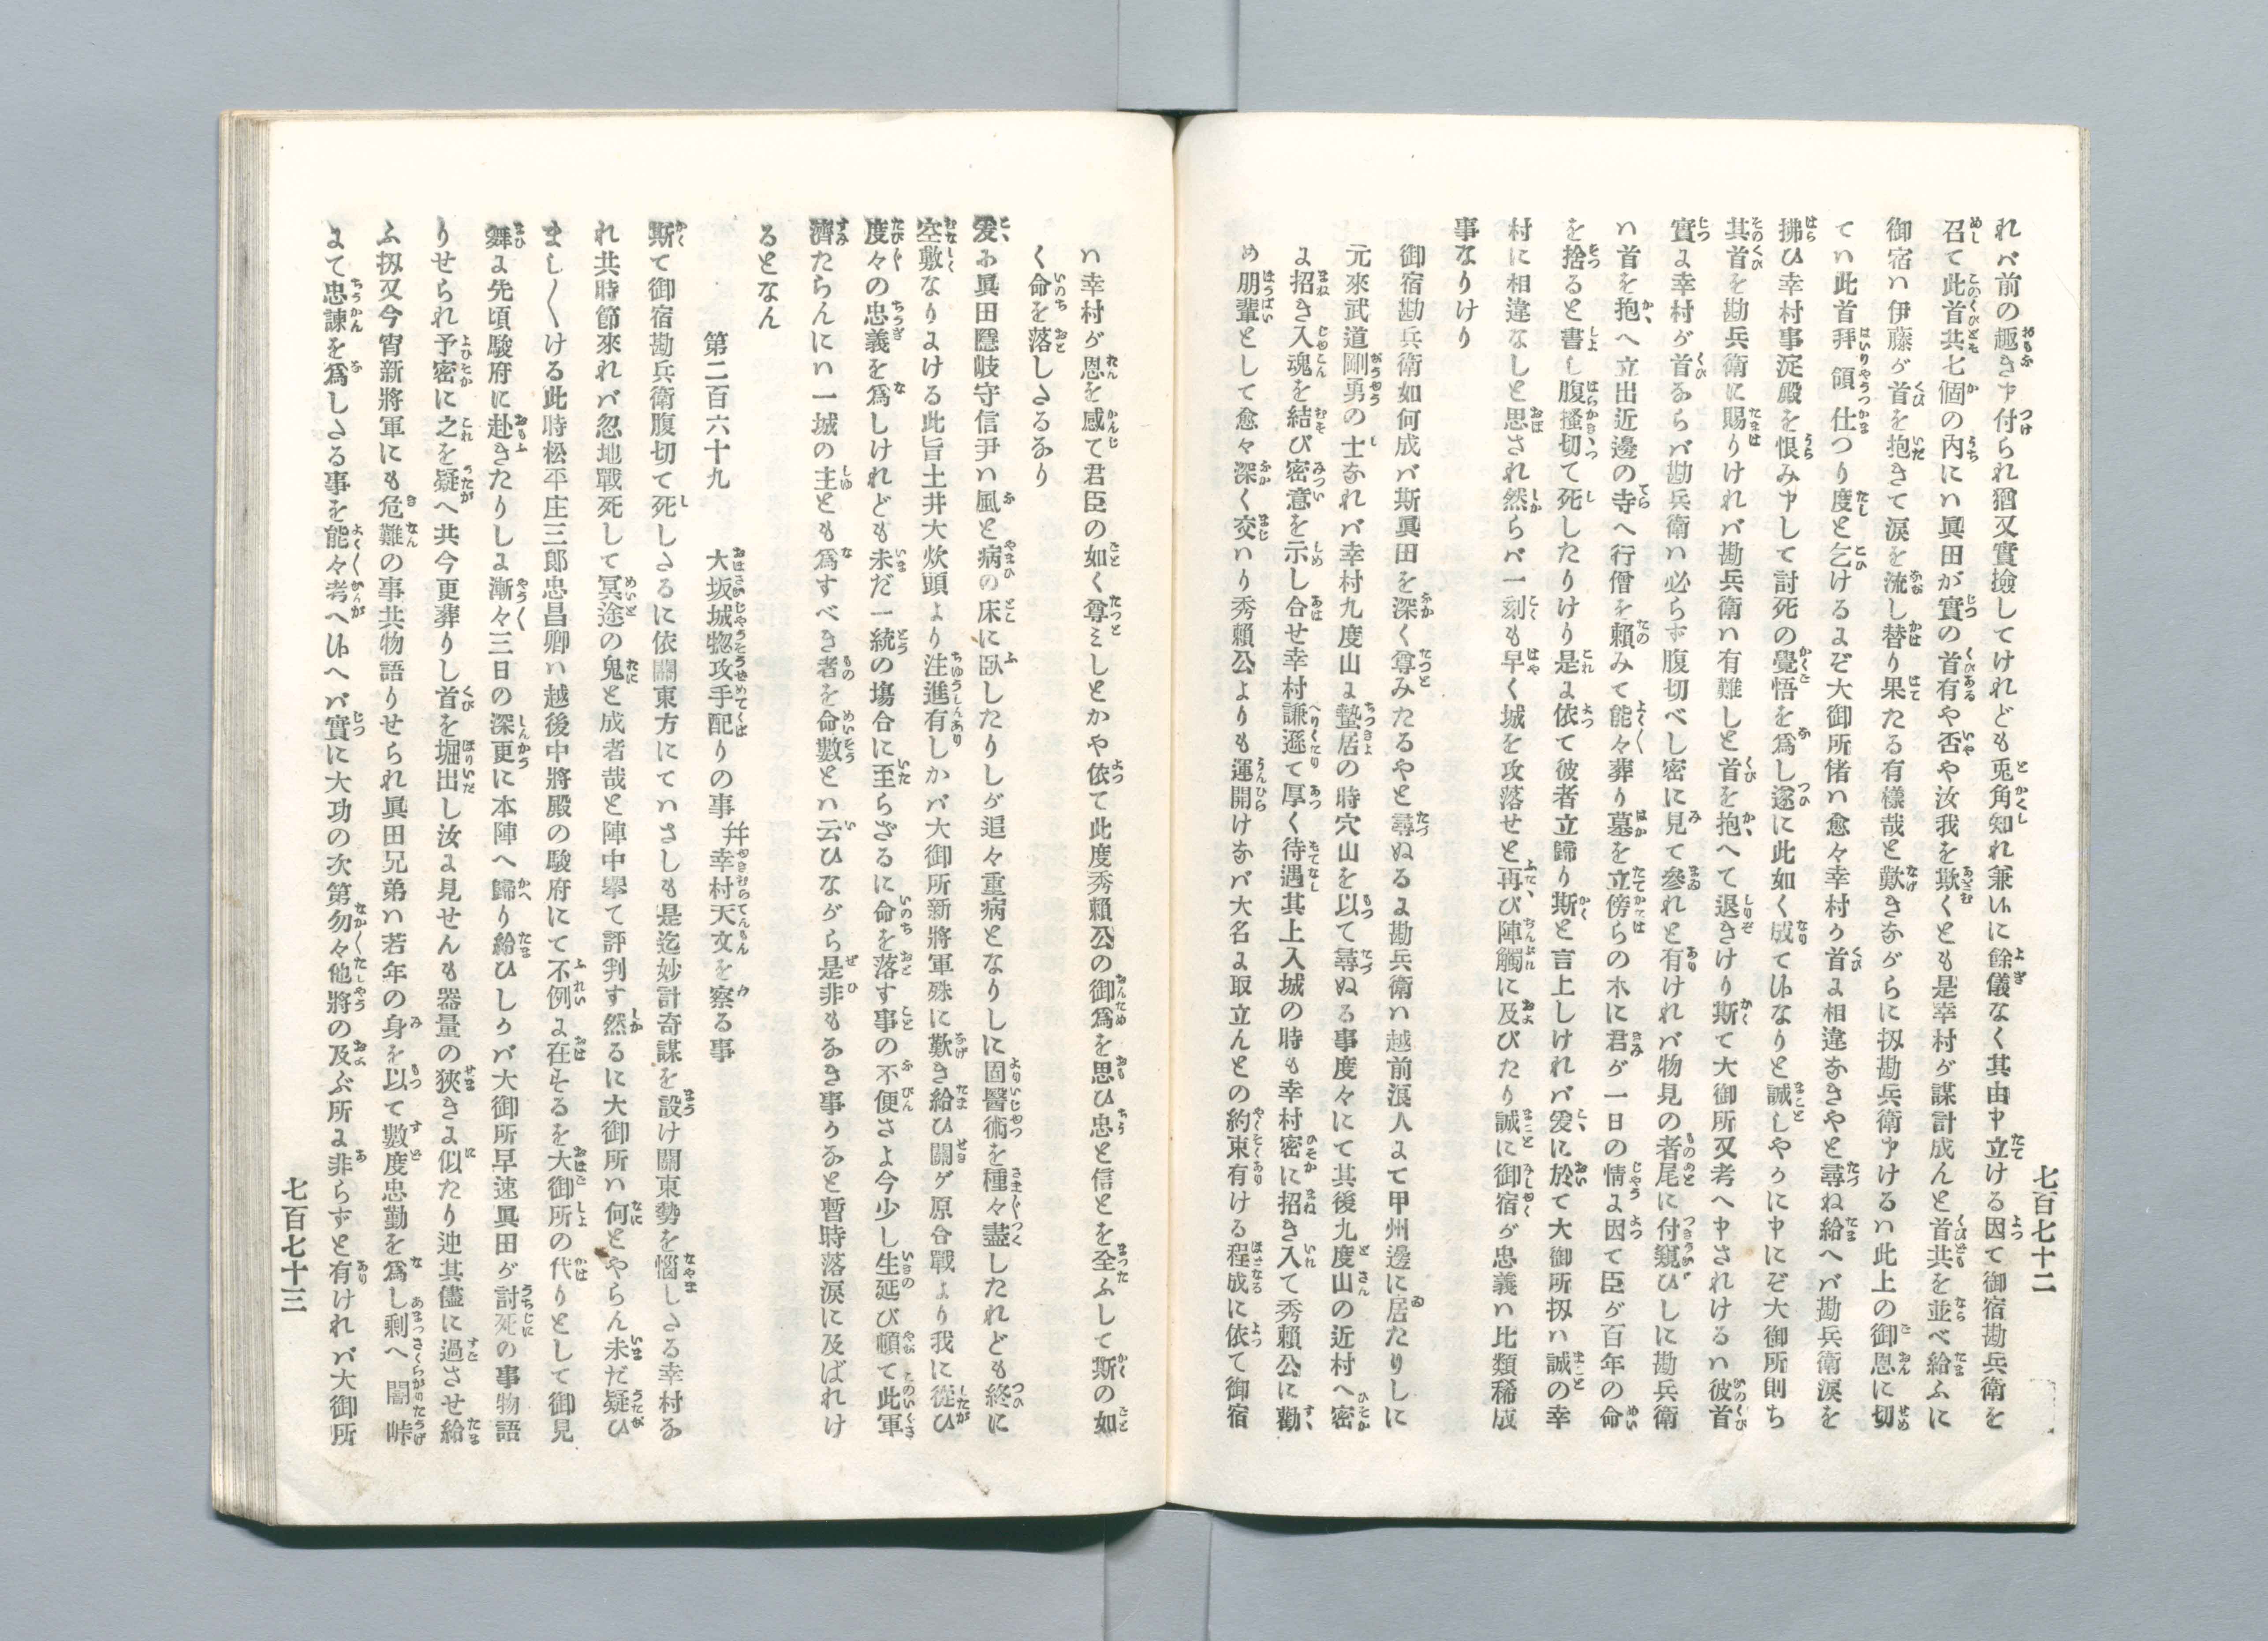 七百七十二
れバ前の趣き申付られ猶又實撿してけれども兎角知れ兼いに餘儀なく其由申立ける因て御宿勘兵衛を
召て此首共七個の内にハ眞田が實の首有や否や汝我を欺くとも是幸村が謀計成んと首共を並べ給ふに
御宿ハ伊藤が首を抱きて涙を流し替り果たる有樣哉と歎きながらに扨勘兵衛申けるハ此上の御恩に切
てハ此首拜領仕つり度と乞けるよぞ大御所偖ハ愈々幸村か首よ相違なきやと尋ね給へバ勘兵衛涙を
拂ひ幸村事淀殿を恨み申して討死の覺悟を爲し遂に此如く成てけなりと誠しやかに申にぞ大御所則ち
其首を勘兵衛に賜りけれバ勘兵衛ハ有難しと首を抱へて退きけり斯て大御所又考へ申されけるハ彼首
實よ幸村が首ならバ勘兵衛ハ必らず腹切べし密に見て參れと有ければ物見の者尾に付窺ひしに勘兵衛
ハ首を抱へ立出近邊の寺へ行僧を頼みて能々葬り墓を立傍らの木に君が一日の情よ因て臣が百年の命
を捨ると書し腹搔切て死したりけり是よ依て彼者立歸り斯と言上しけれバ爰に於て大御所扨ハ誠の幸
村に相違なしと思され然らバ一刻も早く城を攻落せと再び陣觸に及びたり誠に御宿が忠義ハ比類稀成
事なりけり
御宿勘兵衛如何成バ斯眞田を深く尊みたるやと尋ぬるよ勘兵衛ハ越前浪人よて甲州邊に居たりしに
元來武道剛勇の士なれバ幸村九度山よ蟄居の時穴山を以て尋ぬる事度々にて其後九度山の近村へ密
よ招き入魂を結び密意を示し合せ幸村謙遜て厚く待遇其上入城の時も幸村密に招き入て秀頼公に勸
め朋輩として愈々深く交ハり秀頼公よりも運開けなバ大名よ取立んとの約束有ける程成に依て御宿
ハ幸村が恩を感て君臣の如く尊ミしとかや依て此度秀頼公の御爲を思ひ忠と信とを全ふして斯の如
く命を落しさるなり
爰お眞田隱岐守信尹ハ風と病の床に臥したりしが追々重病となりしに固醫術を種々盡したれども終に
空敷なりよける此旨土井大炊頭より注進有しかバ大御所新將軍殊に歎き給ひ關ヶ原合戰より我に從ひ
度々の忠義を爲しけれども未だ一統の塲合に至らざるに命を落す事の不便さよ今少し生延び頓て此軍
濟たらんにハ一城の主とも爲すべき者を命數とハ云ひながら是非もなき事かなと暫時落涙に及ばれけ
るとなん
第二百六十九　大坂城惣攻手配りの事并幸村天文を察る事
斯て御宿勘兵衛腹切て死しさるに依關東方にてハさしも是迄妙計奇謀を設け關東勢を惱しさる幸村な
れ共時節來れバ忽地戰死して冥途の鬼と成者哉と陣中擧て評判す然るに大御所ハ何とやらん未だ疑ひ
ましくける此時松平庄三郎忠昌卿ハ越後中將殿の駿府にて不例よ在せるを大御所の代りとして御見
舞よ先頃駿府に赴きたりしよ漸々三日の深更に本陣へ歸り給ひしかバ大御所早速眞田が討死の事物語
りせられ予密に之を疑へ共今更葬りし首を堀出し汝よ見せんも器量の狹きよ似たり迚其儘に過させ給
ふ扨又今宵新將軍にも危難の事共物語りせられ眞田兄弟ハ若年の身を以て數度忠勤を爲し剩へ闇峠
よて忠諫を爲しさる事を能々考へいへバ實に大功の次第勿々他將の及ぶ所よ非らずと有けれバ大御所
七百七十三